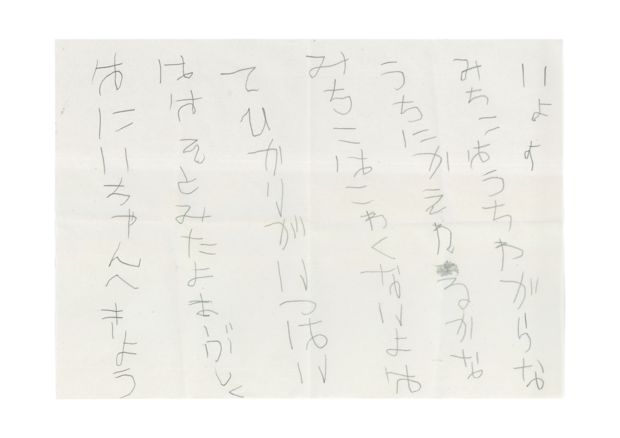 おにいちゃんへきよう
ははそとみたよまぶしく
てひかりがいつぱい
みちこはこわくないよお
うちにかえれるかな
みちこはうちわがらな
いよ